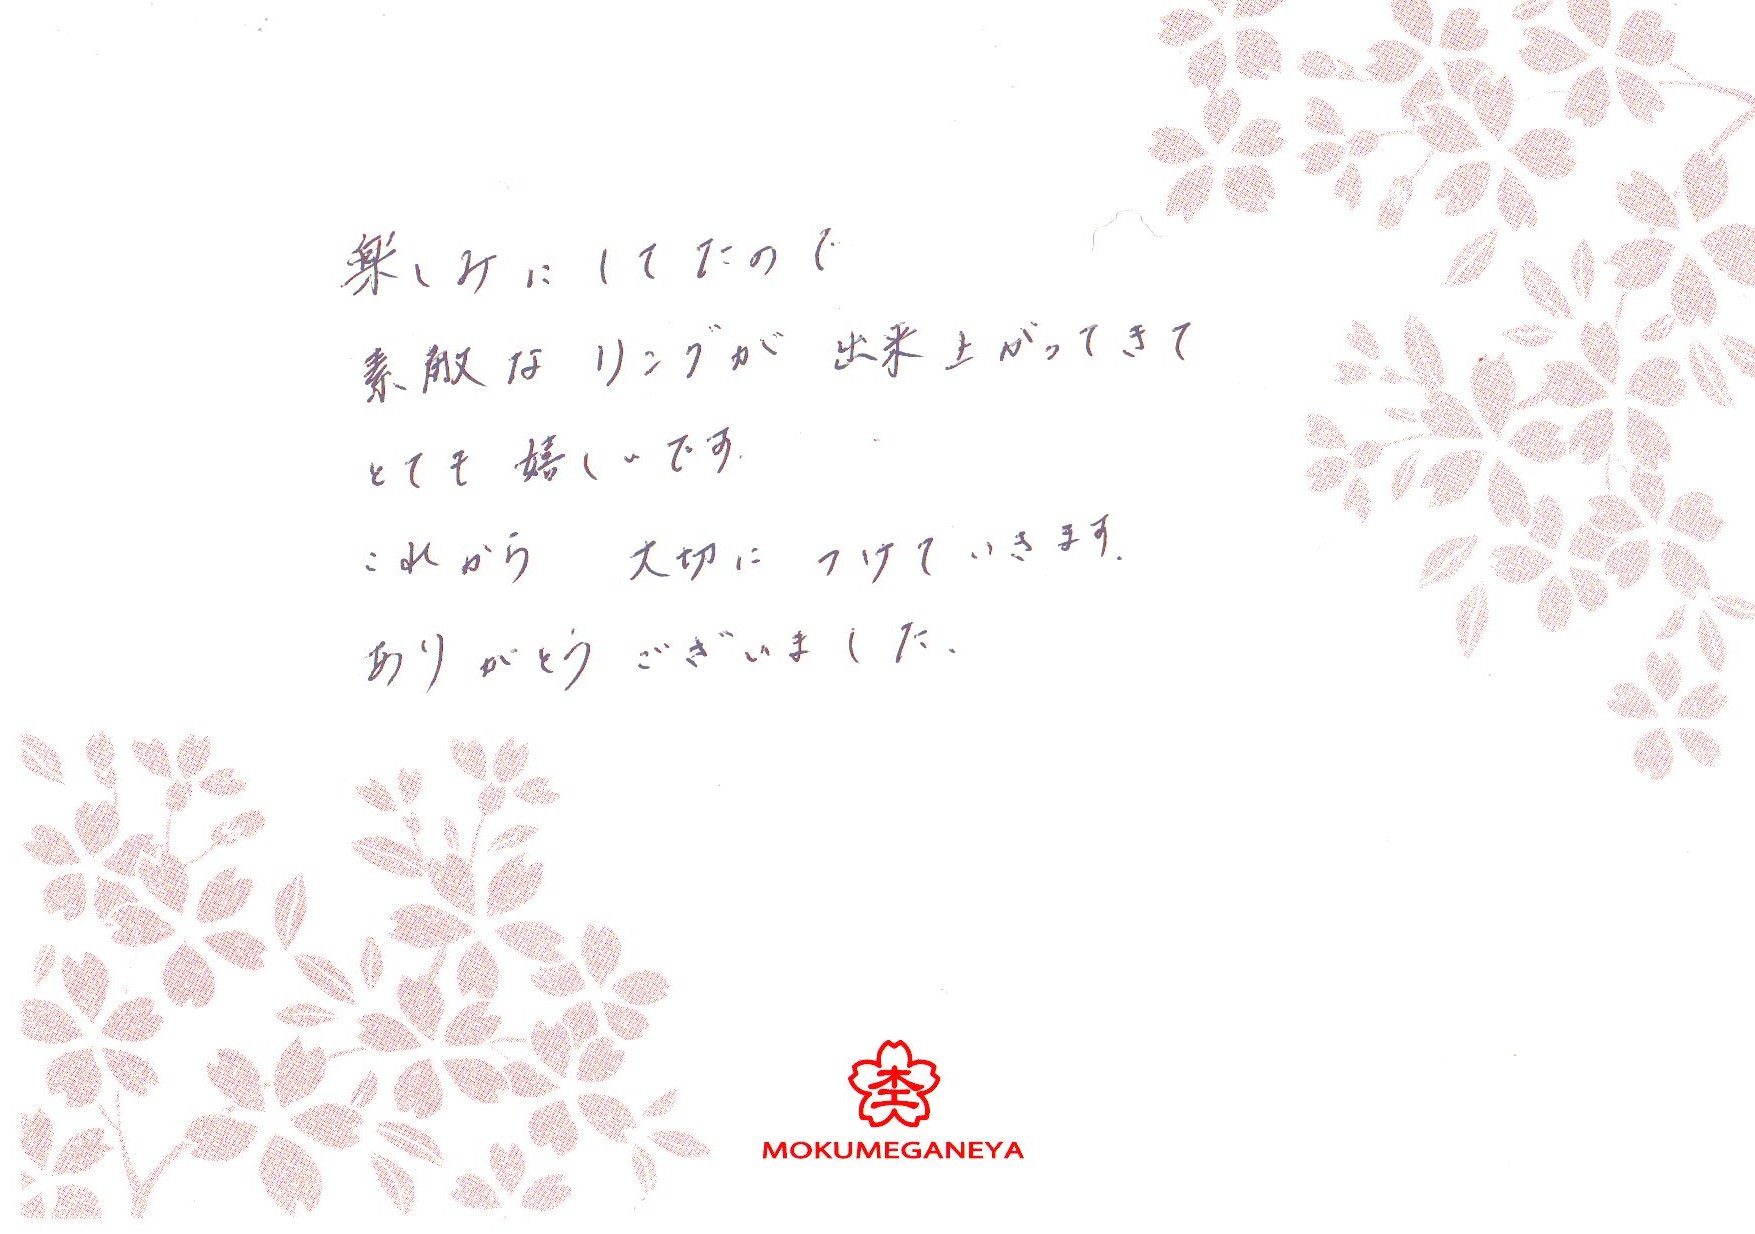 楽しみにしてたので
素敵なリングが出来上がってきて
とても嬉しいです。
これから 大切につけていきます。
ありがとうございました。
MOKUMEGANEYA